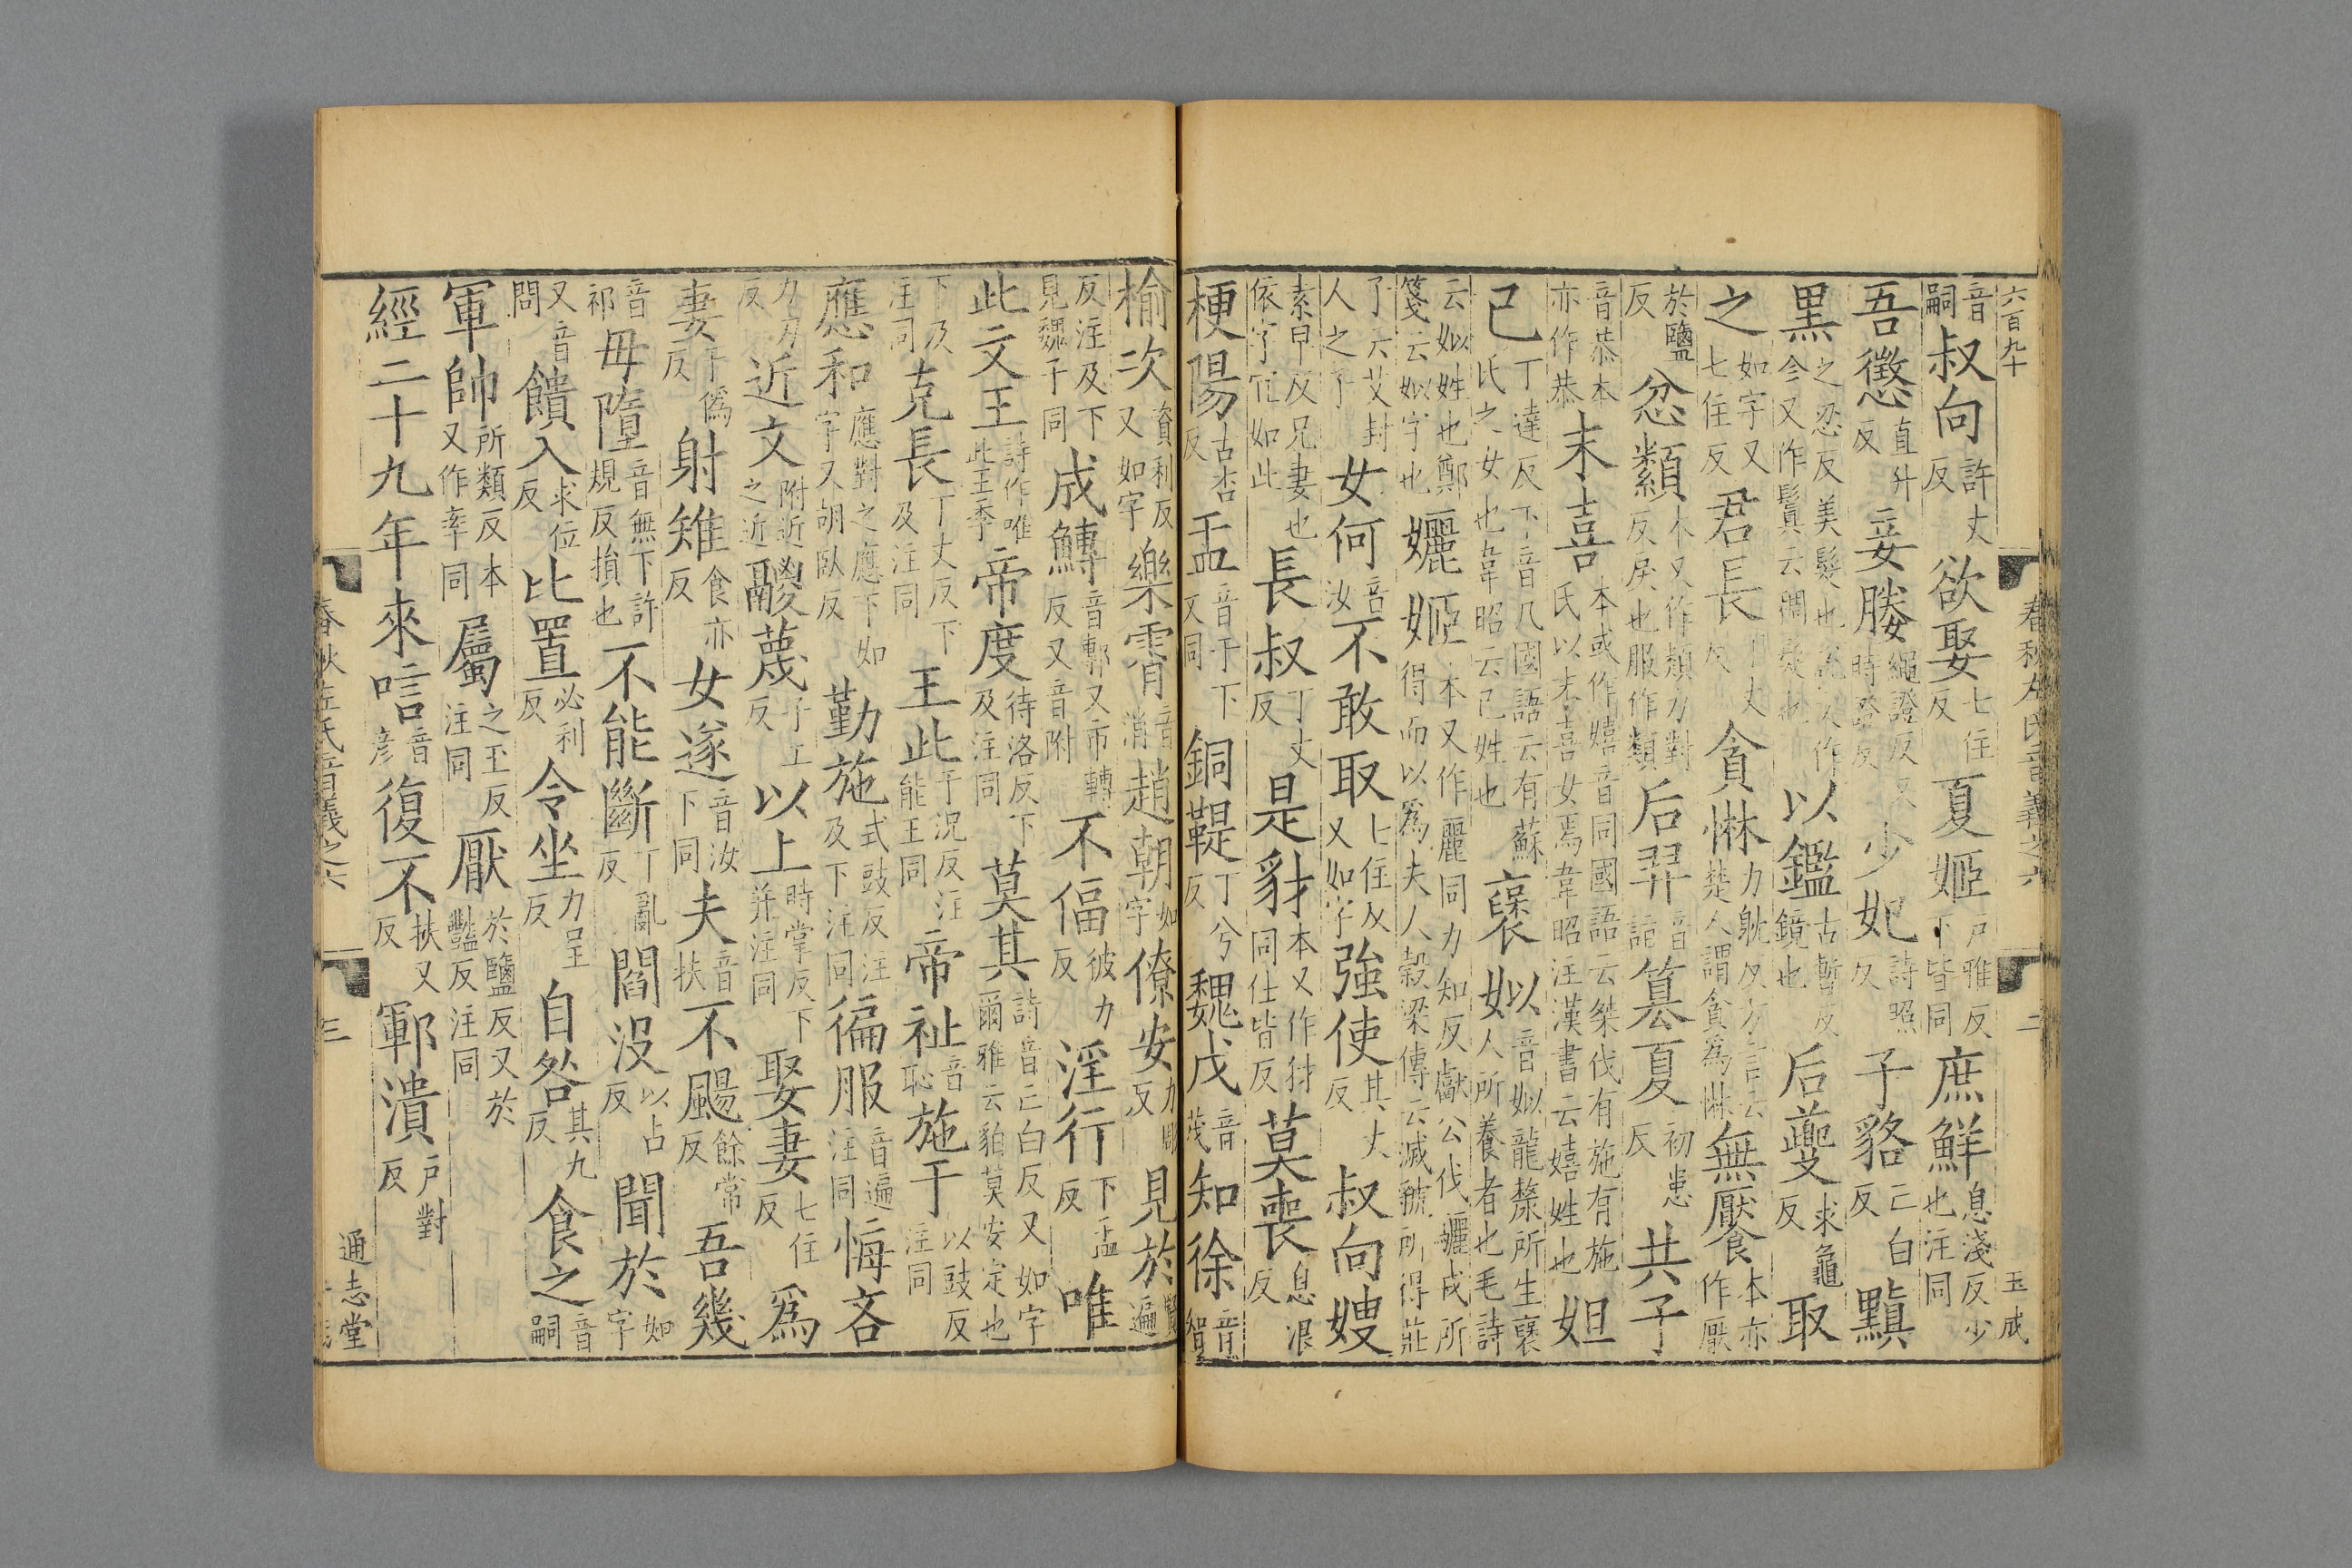 六百九十
春秋左氏音義之六
二
玉成
音嗣叔向許丈反欲娶七住反夏姬戸雅反下皆同庶鮮息淺反少也注同
吾懲直升反妾媵繩證反又時證反少妃詩照反子貉亡白反黰
黒之忍反美髮也說文作㐱又作鬒云稠髮也以鑑古暫反鏡也后夔求龜反取
之如字又七住反君長丁丈反貪惏力耽反方言云楚人謂貪爲惏無厭本亦作厭
於鹽反忿纇本又作類力對反戾也服作類后羿音詣篡夏初患反共子
音恭本亦作恭末喜本或作嬉音同國語云桀伐有施有施氏以末喜女焉韋昭注漢書云嬉姓也妲
己丁達反下音几國語云有蘇氏之女也韋昭云己姓也褒姒音似龍漦所生褒人所養者也毛詩
云姒姓也鄭箋云姒字也孋姬本又作麗同力知反獻公伐孋戎所得而以爲夫人穀梁傳云滅虢所得莊
了六艾封人之子女何音汝不敢取七住反又如字強使其丈反叔向嫂
素早反兄妻也依字宜如此長叔丁丈反是豺本又作犲同仕皆反莫喪息浪反
梗陽古杏反盂音于下又同銅鞮丁兮反魏戊音茂知徐音智
榆次資利反又如字樂霄音消趙朝如字僚安力彫反見於賢遍
反注及下見魏子同成鱄音專又市轉反又音附不偪彼力反淫行下孟反唯
此文王詩作唯此王季帝度待洛反下及注同莫其詩音亡白反又如字爾雅云貊莫安定也
下及注同克長丁丈反下及注同王此于況反注能王同帝祉音恥施于以豉反注同
應和應對之應下如字又胡臥反勤施式豉反注及下注同徧服音遍注同悔吝
力刃反近文附近之近鬷蔑子工反以上時掌反下并注同娶妻七住反爲
妻于僞反射雉食亦反女遂音汝下同夫音扶不颺餘常反吾幾
音祁毋墮音無下許規反損也不能斷丁亂反閻没以占反聞於如字
又音問饋入求位反比置必利反令坐力呈反自咎其九反食之音嗣
軍帥所類反本又作率同屬之玉反注同厭於鹽反又於豔反注同
經二十九年來唁音彦復不扶又反鄆潰戸對反
春秋左氏音義之六
三
通志堂